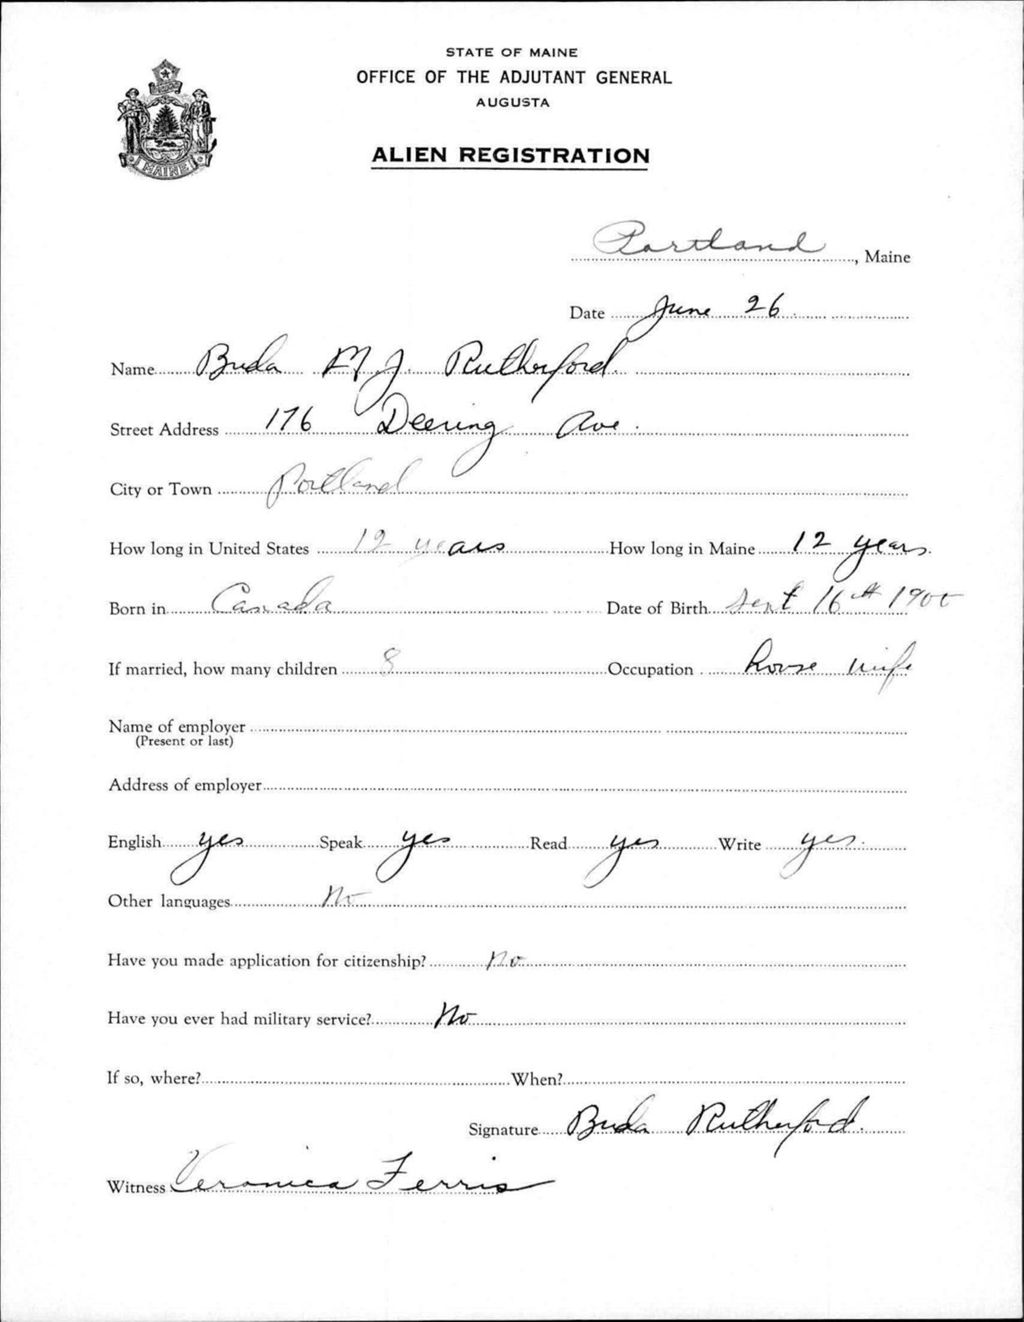 STATE OF MAINE
OFFICE OF THE ADJUTANT GENERAL
AUGUSTA
ALIEN REGISTRATION
MAINE
Portland, Maine
Date June 26
Name Buda M. J. Rutherford.
Street Address 176 Deering Ave.
City or Town Portland
How long in United States 12 years How long in Maine 12 years.
Born in Canada Date of Birth Sept 16th 1900
If married, how many children 8 Occupation house wife
Name of employer
(Present or last)
Address of employer
English yes Speak yes Read yes Write yes.
Other languages No
Have you made application for citizenship? No
Have you ever had military service? No
If so, where? When?
Signature Buda Rutherford.
Witness Veronica Ferris